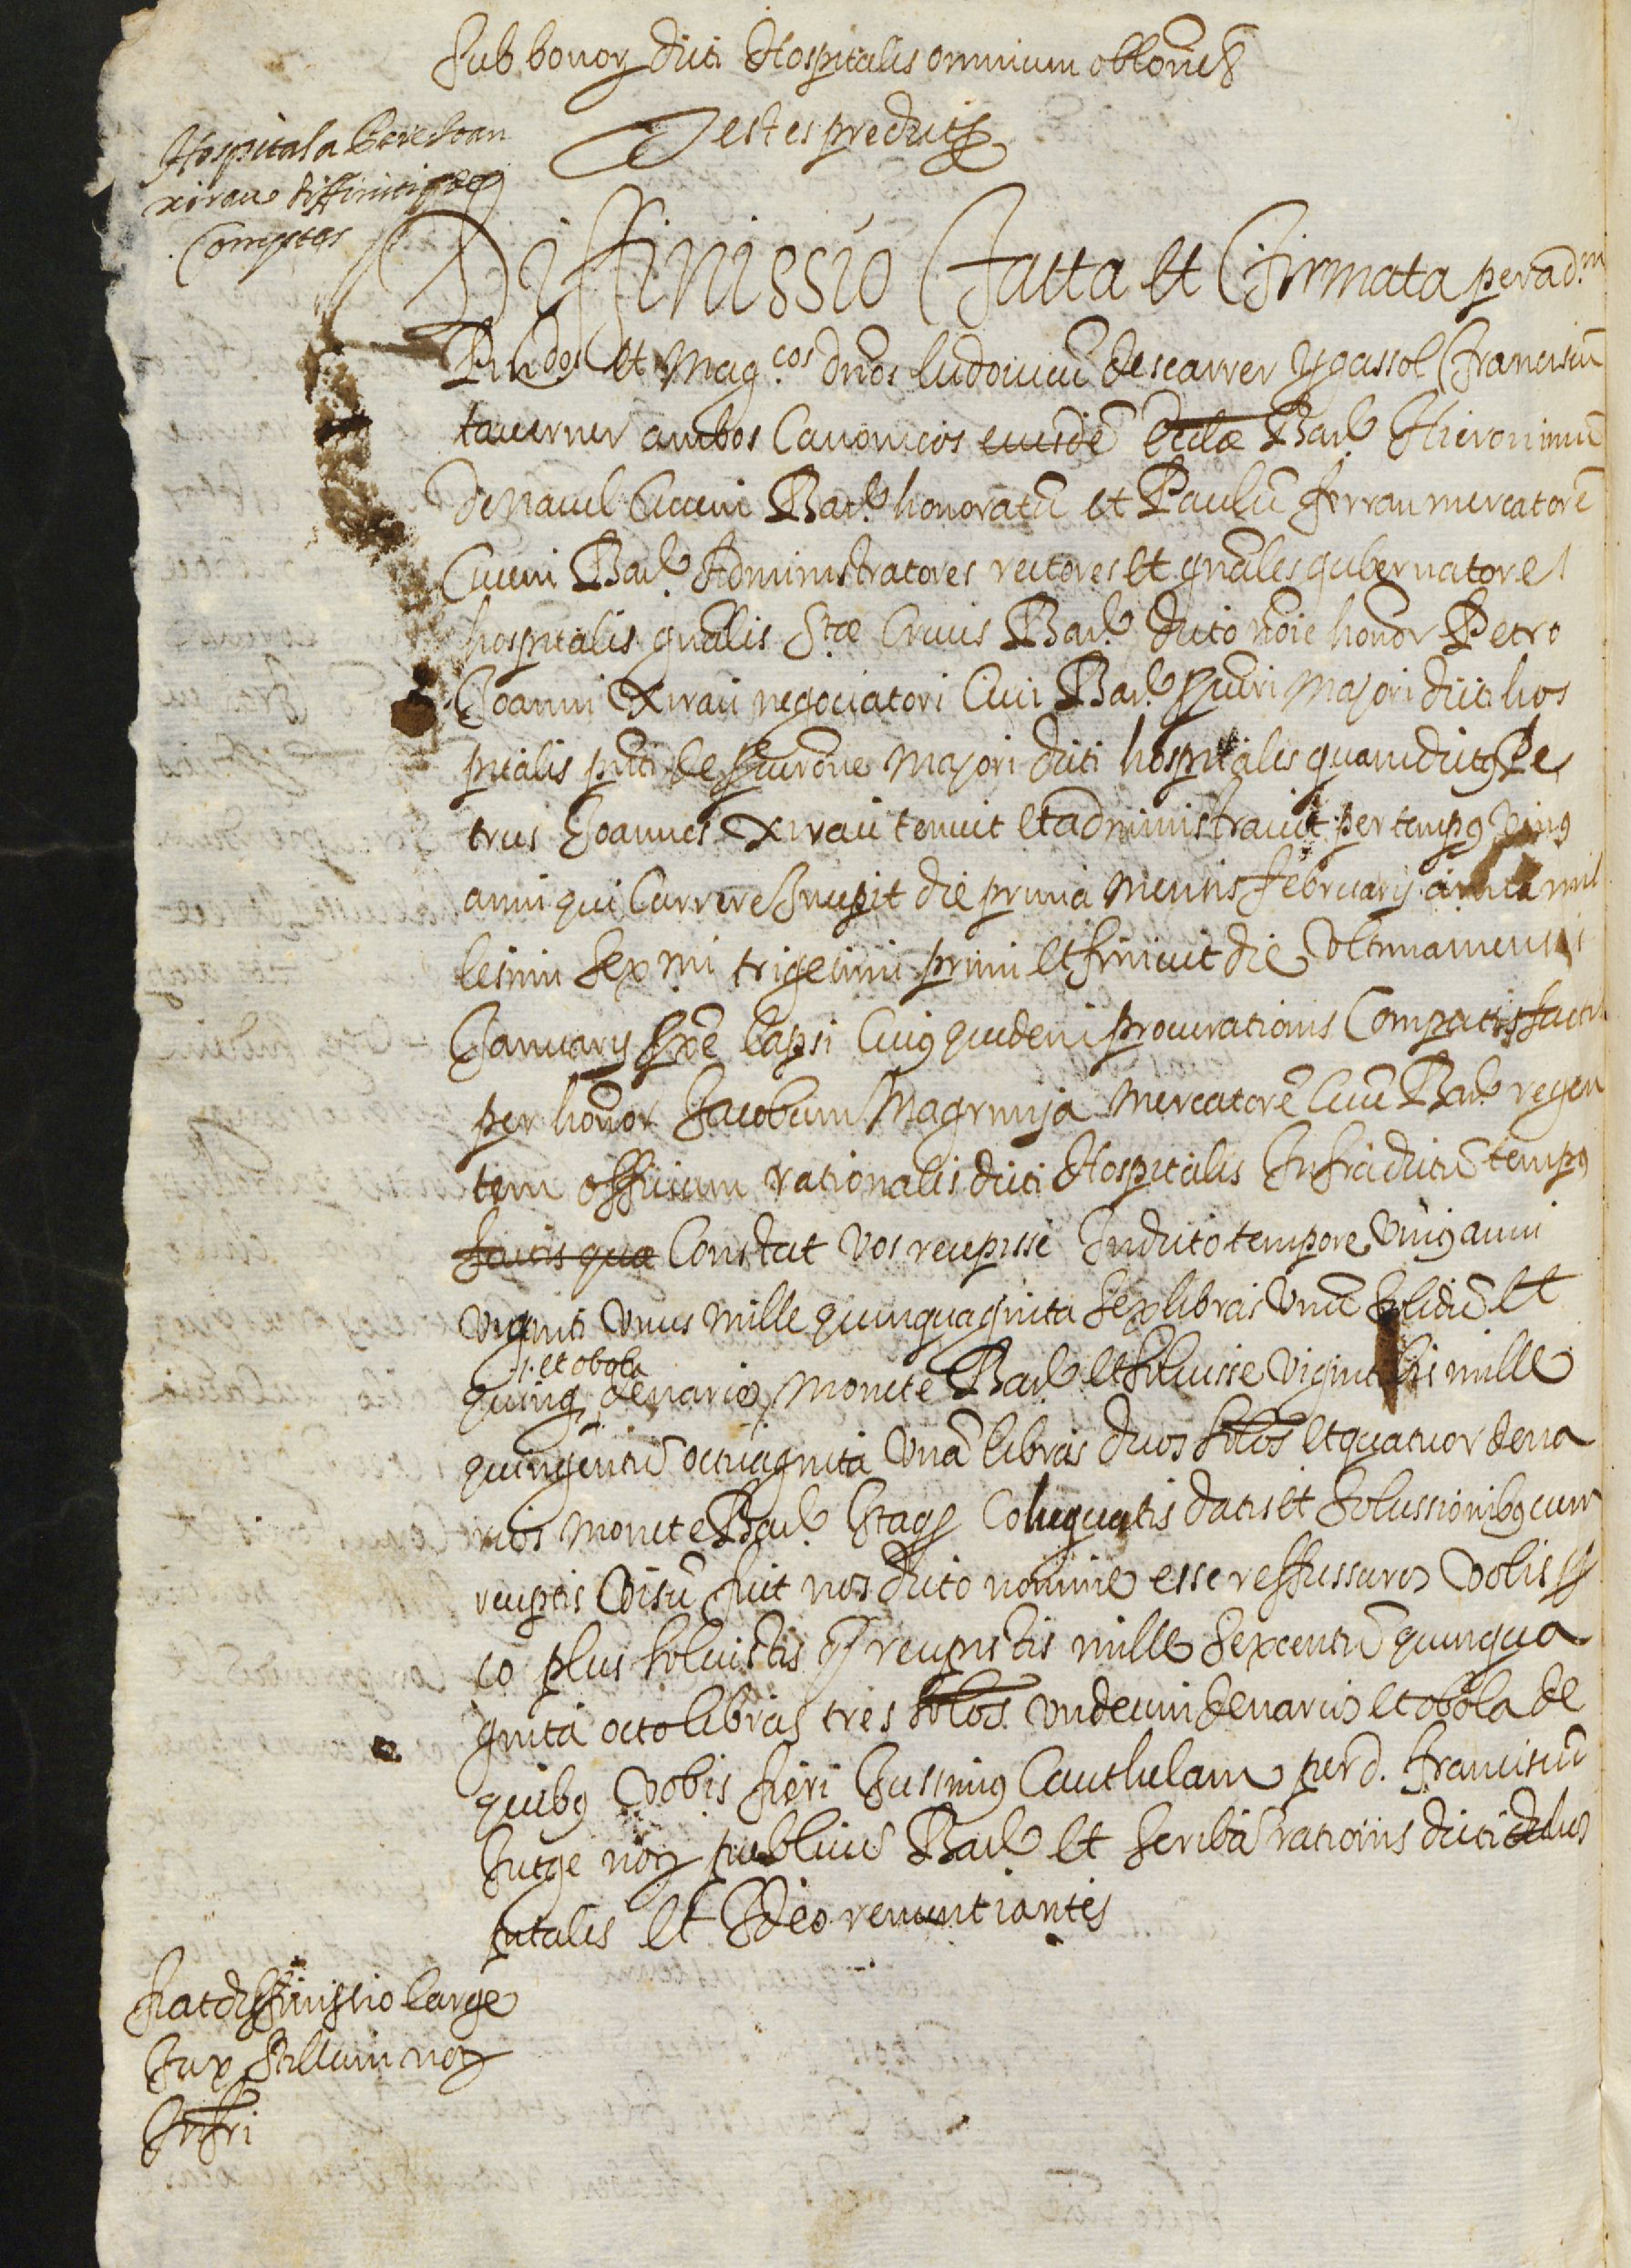 Sub bonor dicti Hospitalis omnium obblone &
Testes predicti
Hospital a Pere Joan
xirau diffinitio de
Comptes
Diffinissio facta et firmata per ad.m
Rndos et Mag.cos dnos ludovicu descarrer y gassol franciscu
taverner ambos Canonicos eiusde Ecclae Barc Hieronimu
de Navel Civem Barc honoratu et Paulu ferran mercatore
Civem Barc Administratores rectores et gnales gubernatores
hospitalis gnalis Stae Crucis Barc dicto noie honor Petro
Joanni Xirau negociatori Civi Barc procuri Majori dicti hos
pitalis pnti de procurone Majori dicti hospitalis quam dictus Pe
trus Joannes Xirau tenuit et administravit per tempus unius
anni qui Currere Incepit die prima mensis februarij anni mil
lesimi sex mi trigesimi primi et finivit die Ultima mensis
Januarij pxe lapsi Cuius quidem procurationis Computis factis
per honor Jacobum Magrinya mercatore Cive Barc regen
tem officium rationalis dicti Hospitalis Infradictu tempus
factis qua Constat vos recepisse In dicto tempore Unius anni
viginti Unus mille quinquaginta sex libras Unu solidu et
1. et obolu
quinq denarios monete Barc et solvisse viginti bis mille
quingentu octuaginta Una libras duos solos et quatuor dena
rios monete Barc Itaq Coliquatis datis et solussionibus cum
receptis visu fuit nos dicto nomine esse reffussuros vobis pro
eo plus solvistis q recepistis mille sexcentu quinqua
ginta octo libras tres solos undecim denarios et obola de
quibus vobis fieri Jussimus Cauthelam per d. franciscu
Jutge nor publicu Barc et scriba rationis dicti hos
pitalis et Ideo renuntiantes
fiat diffinissio large
Jux stillum nor
Infri